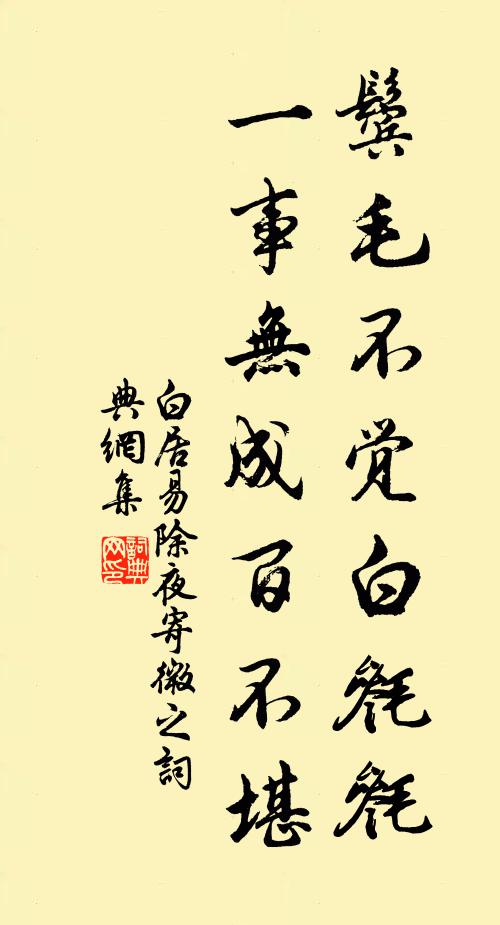 鬓毛不觉白毵毵
一事無成百不堪
白居易除夜寄微之詞
典網集
詞典網印